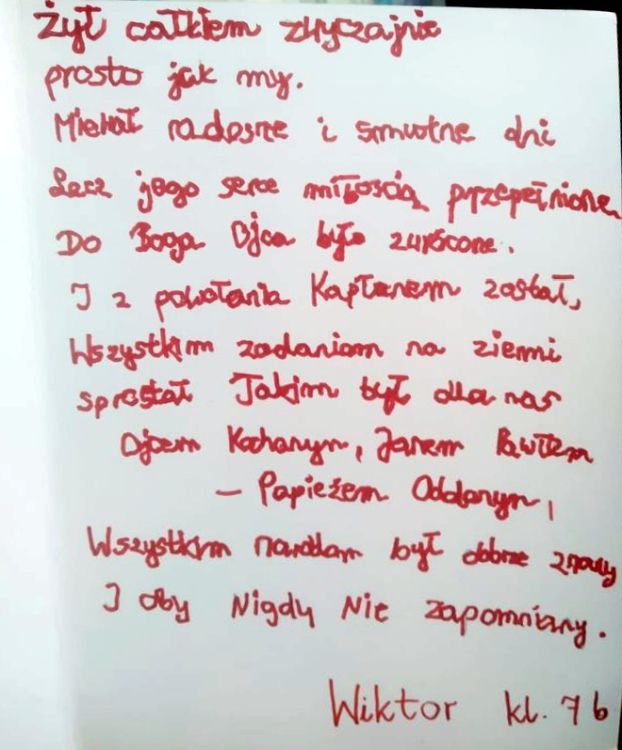 Żył całkiem zwyczajnie
prosto jak my.
Miewał radosne i smutne dni
Lecz jego serce miłością przepełnione
Do Boga Ojca było zwrócone.
I z powołania Kapłanem został,
Wszystkim zadaniom na ziemi
sprostał Takim był dla nas
Ojcem Kochanym, Janem Pawłem
– Papieżem Oddanym,
Wszystkim narodom był dobrze znany
I oby Nigdy Nie zapomniany.
Wiktor kl. 7b